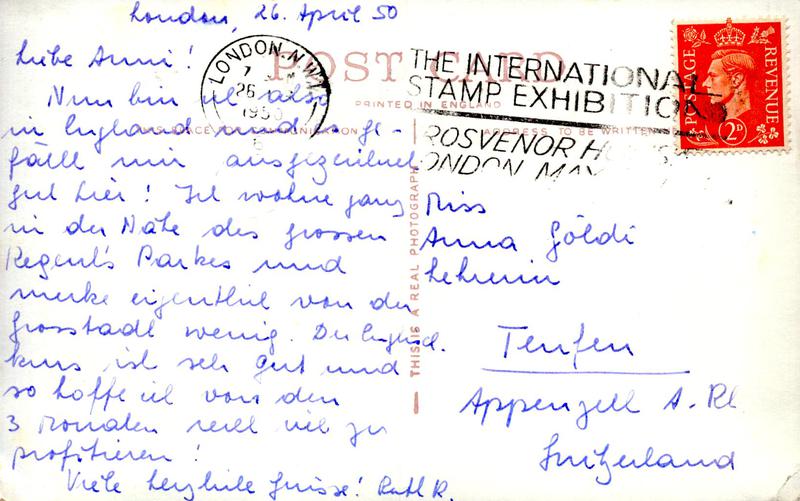 London, 26. April 50
Liebe Anni!
Nun bin ich also
in England und es ge-
fällt mir ausgezeichnet
gut hier! Ich wohne ganz
in der Nähe des grossen
Regent's Parkes und
merke eigentlich von der
Grosstadt wenig. Der Englisch-
kurs ist sehr gut und
so hoffe ich von den
3 Monaten recht viel zu
profitieren!
Viele herzliche Grüsse! Ruth R.
POST CARD
PRINTED IN ENGLAND
ADDRESS TO BE WRITTEN
THIS IS A REAL PHOTOGRAPH
LONDON. N.W.1
26
1950
THE INTERNATIONAL
STAMP EXHIBITION
GROSVENOR H
LONDON MAY
POSTAGE REVENUE
2D
Miss
Anna Göldi
Lehrerin
Teufen
Appenzell A. Rh.
Switzerland